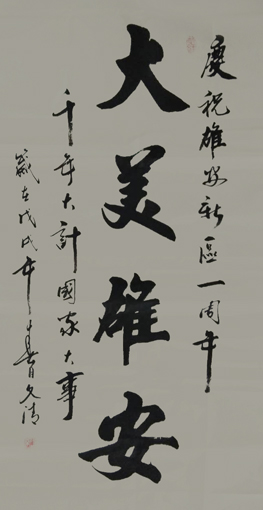 慶祝雄安新區一周年
大美雄安
千年大計國家大事
歲在戊戌年春月文清